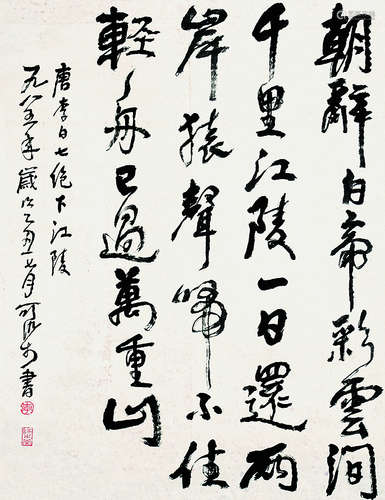 朝辭白帝彩雲間
千里江陵一日還兩
岸猿聲啼不住
輕々舟已過萬重山
唐李白七絕下江陵
一九八五年歲次乙丑七月書